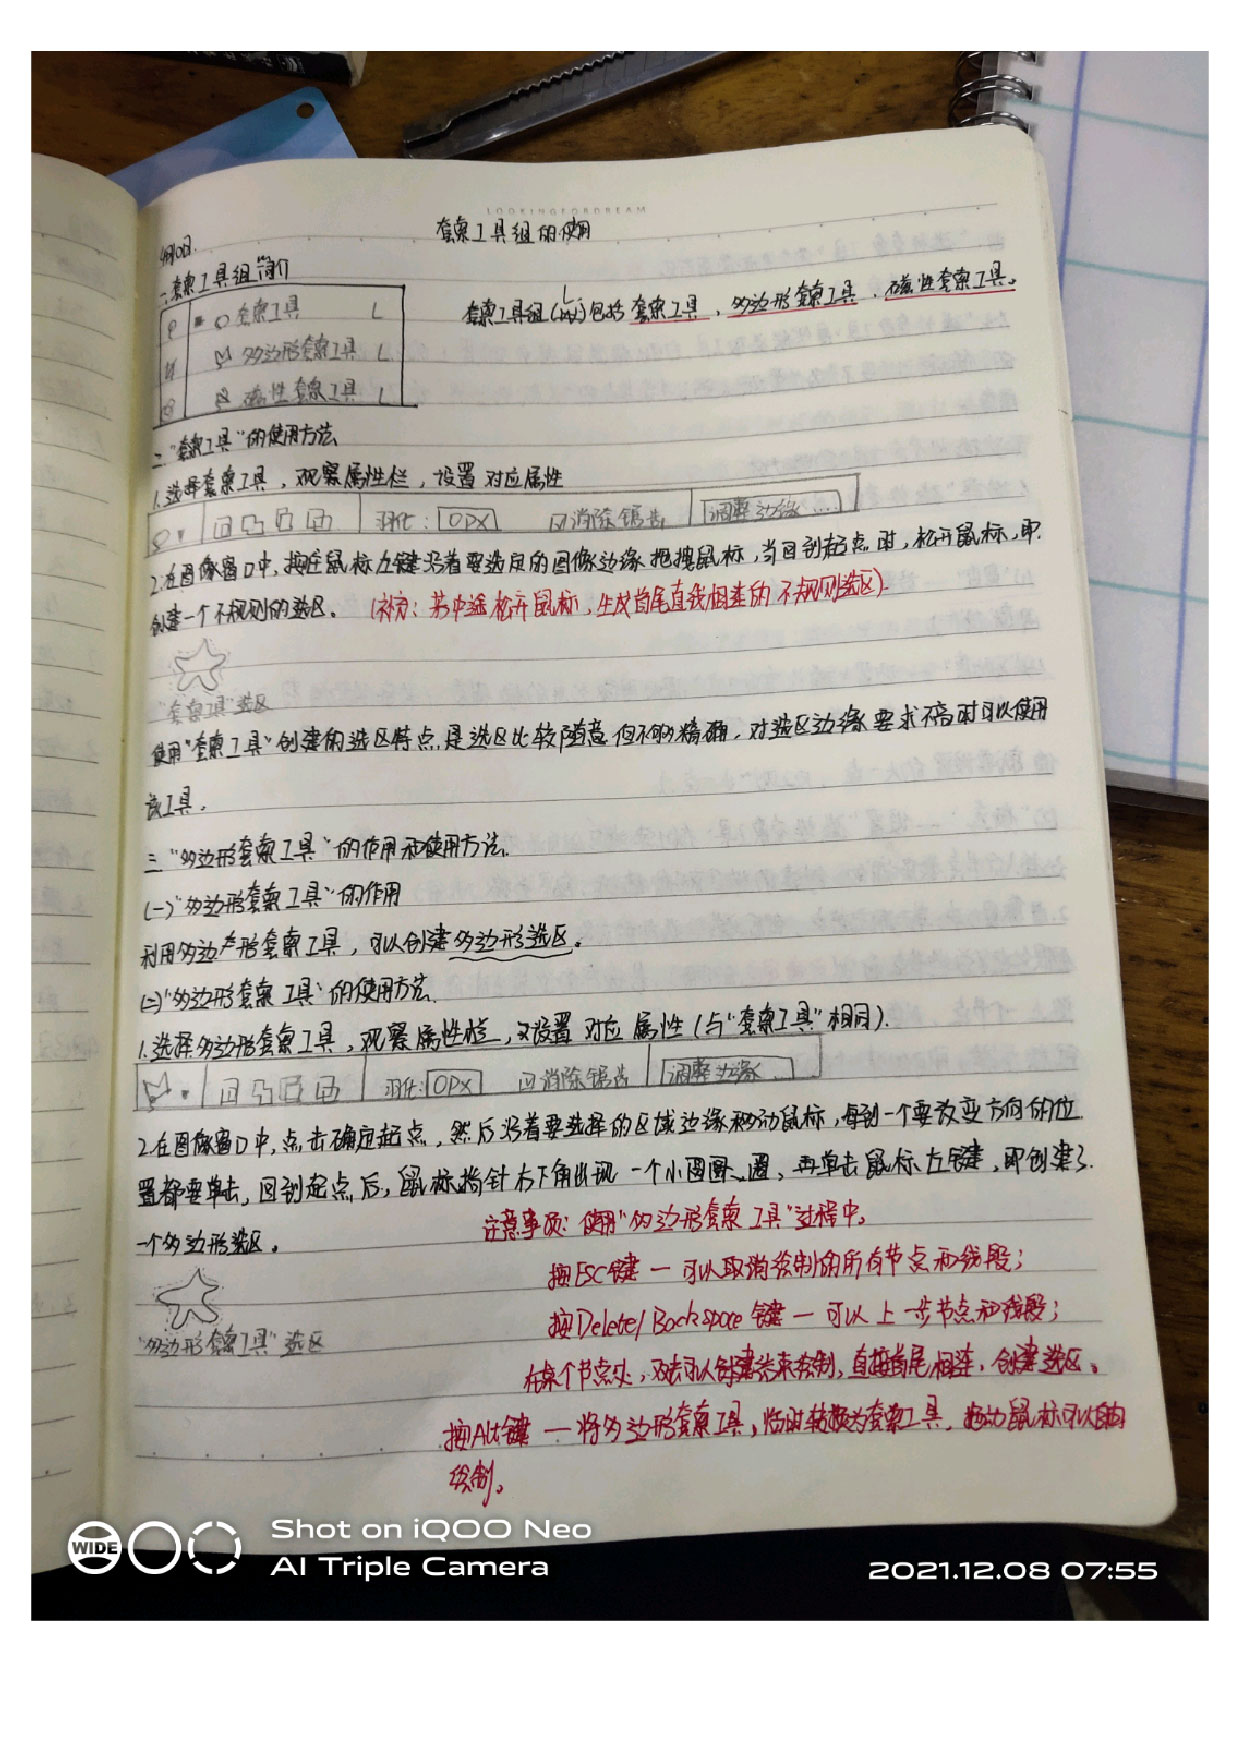 LOOKINGFORDREAM
套索工具组的使用
4月10日.
一.套索工具组简介
套索工具 L
多边形套索工具 L
磁性套索工具 L
套索工具组(L)包括套索工具、多边形套索工具、磁性套索工具。
二."套索工具"的使用方法
1.选择套索工具，观察属性栏，设置对应属性
羽化: 0PX 消除锯齿 调整边缘...
2.在图像窗口中，按住鼠标左键沿着要选定的图像边缘拖拽鼠标，当回到起点时，松开鼠标，即
创建一个不规则的选区。(补充: 若中途松开鼠标，生成首尾直线相连的不规则选区).
"套索工具"选区
使用"套索工具"创建的选区特点是选区比较随意但不够精确，对选区边缘要求不高时可以使用
该工具.
三."多边形套索工具"的作用和使用方法.
(一)"多边形套索工具"的作用
利用多边形套索工具，可以创建多边形选区。
(二)"多边形套索工具"的使用方法.
1.选择多边形套索工具，观察属性栏，设置对应属性(与"套索工具"相同).
羽化: 0PX 消除锯齿 调整边缘
2.在图像窗口中，点击确定起点，然后沿着要选择的区域边缘移动鼠标，每到一个要改变方向的位
置都要单击，回到起点后，鼠标指针右下角出现一个小圆圈，再单击鼠标左键，即创建了
一个多边形选区。
注意事项: 使用"多边形套索工具"过程中.
按ESC键 — 可以取消绘制的所有节点和线段;
按Delete/Backspace键 — 可以上一步节点和线段;
"多边形套索工具"选区
在某个节点处，双击可以创建结束绘制，直接首尾相连，创建选区。
按Alt键 — 将多边形套索工具，临时转换为套索工具，拖动鼠标可以自由
绘制。
WIDE
Shot on iQOO Neo
AI Triple Camera
2021.12.08 07:55